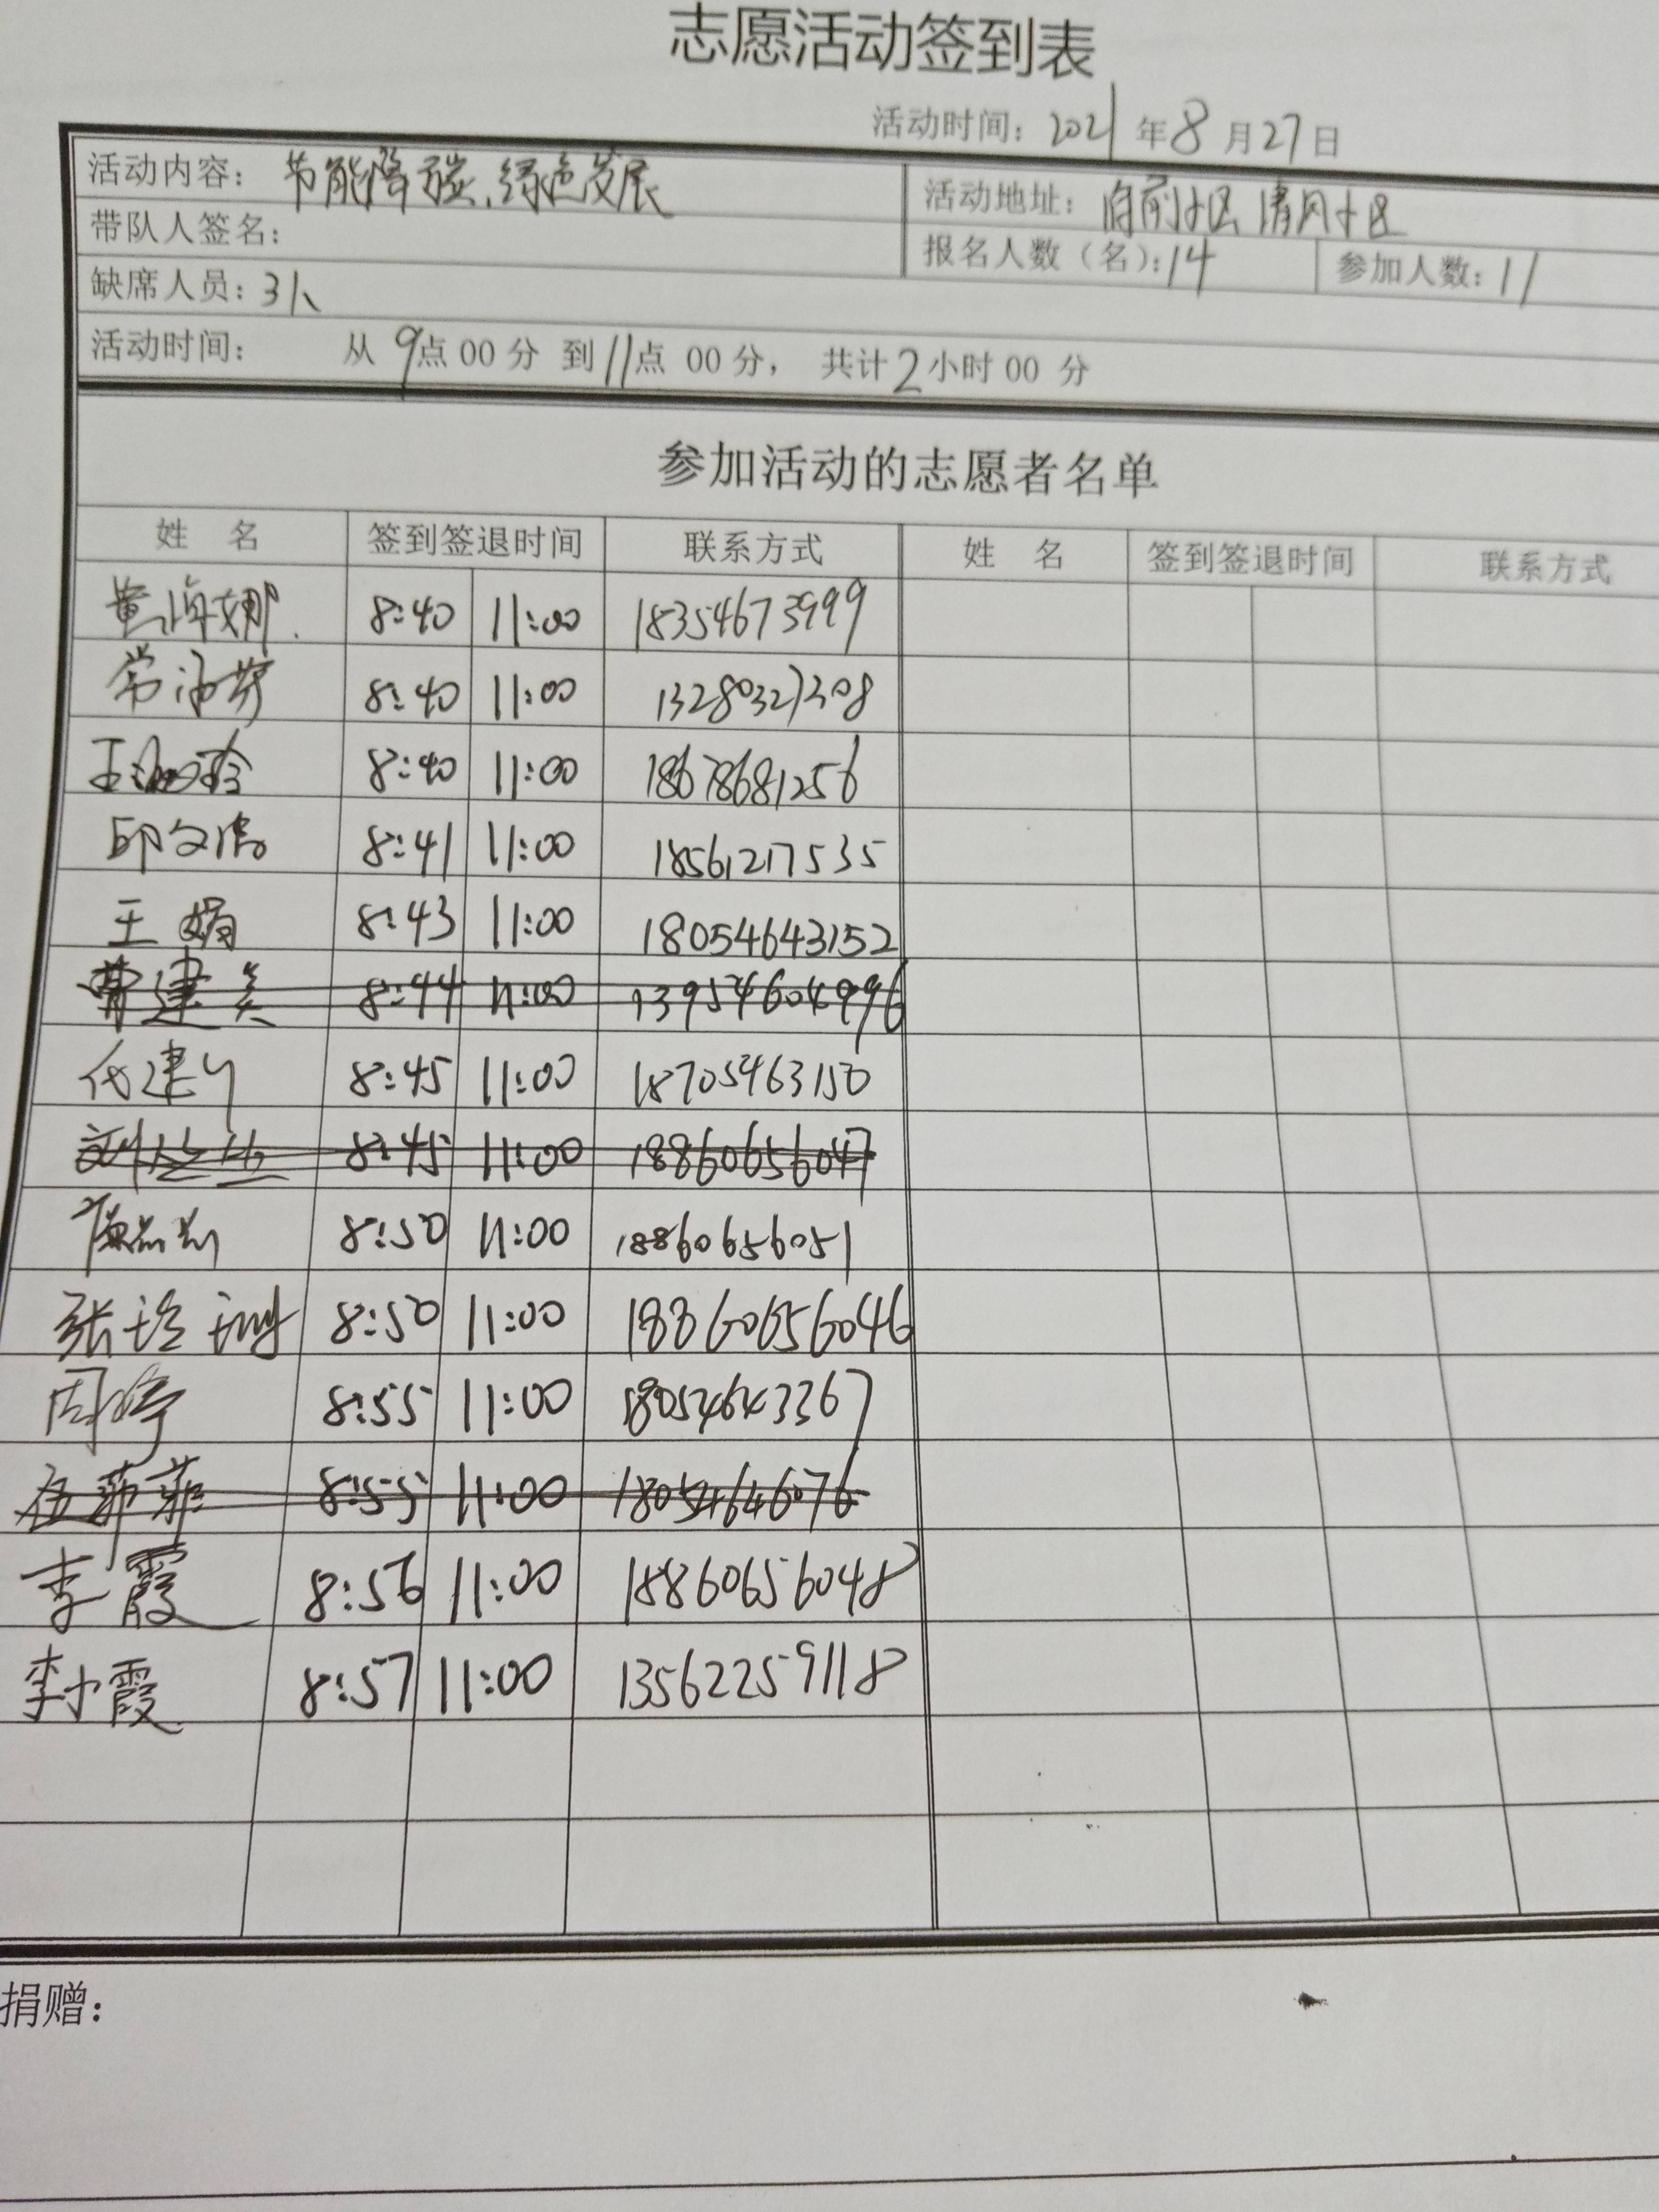 志愿活动签到表
活动时间：2021年8月27日
活动内容：节能降碳、绿色发展 活动地址：府前小区 清风小区
带队人签名： 报名人数（名）：14 参加人数：11
缺席人员：3人
活动时间： 从9点00分 到11点 00分， 共计2小时00 分
参加活动的志愿者名单
姓 名 签到签退时间 联系方式 姓 名 签到签退时间 联系方式
黄海娜 8:40 11:00 18354673999
常 8:40 11:00 13280327308
王 8:40 11:00 18678681256
邱文涛 8:41 11:00 18561217535
王娟 8:43 11:00 18054643152
曹建美 8:44 11:00 13954604996
代建 8:45 11:00 18705463150
刘 8:45 11:00 18860656047
8:50 11:00 18860656051
张玲珊 8:50 11:00 18860656046
周婷 8:55 11:00 18054643367
伍菲菲 8:55 11:00 18054646076
李霞 8:56 11:00 18860656048
李小霞 8:57 11:00 13562259118
捐赠：